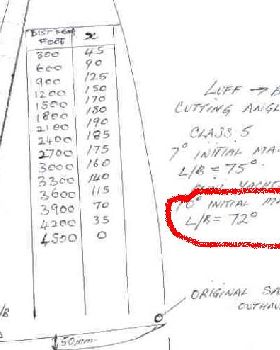 DIST FROM FOOT x
300 45
600 90
900 125
1200 150
1500 170
1800 180
2100 190
2400 185
2700 175
3000 160
3300 140
3600 115
3900 70
4200 35
4500 0
LUFF → B
CUTTING ANGL
CLASS 5
7° INITIAL MA
L/B = 75°
10° INITIAL M
L/B = 72°
ORIGINAL SA
OUTHAU
/B
50mm